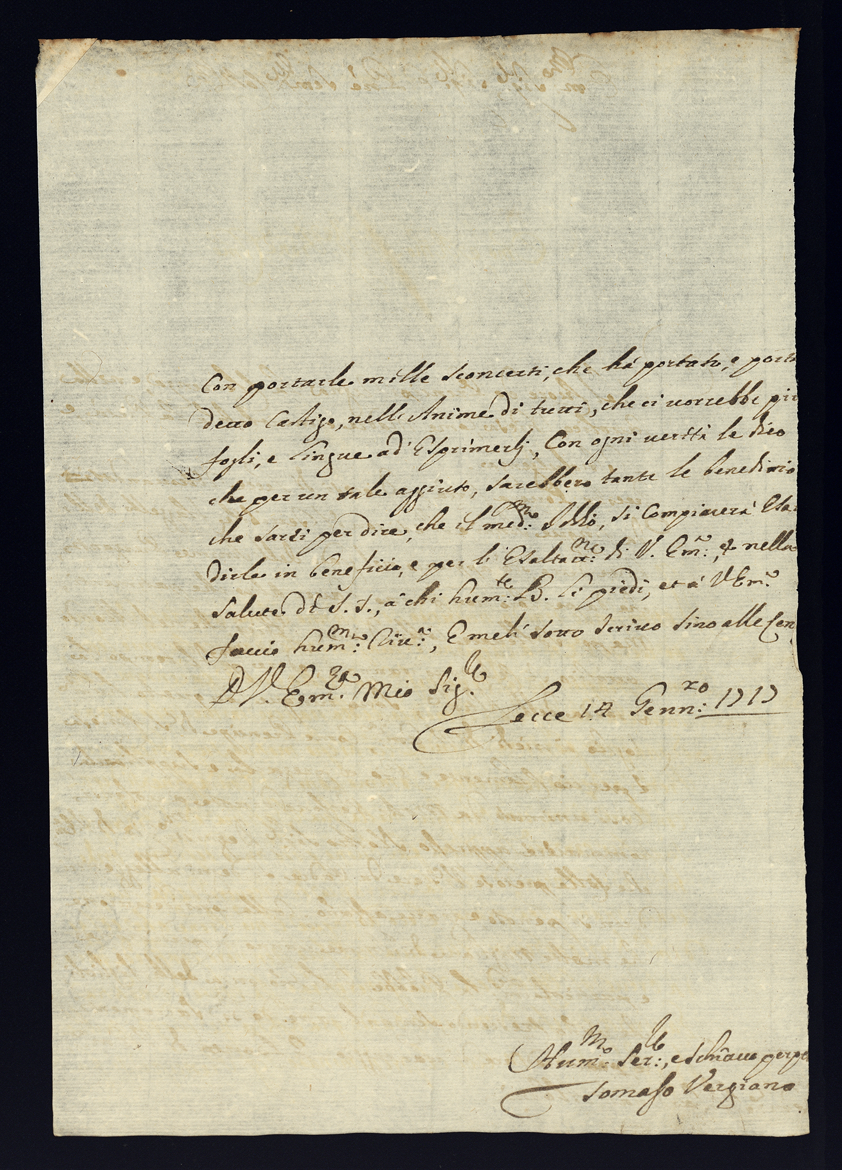 Con portarle mille sconcerti, che há portato, e porta
detto Castigo, nelle Anime di tutti, che ci vorrebbe
fogli, e lingue ad Esprimerli, Con ogni verità le dico
che per un tale aggiuto, sarebbero tante le benedizio
che sarti per dire, che il med:mo Iddio, si Compiacerà Esau
dirla in beneficio, e per l'Esaltaz:ne di V. Em:a, et nella
salute di S. S., a chi hum:te B. li piedi, et á V Em:a
faccio hum:ma, E me li sotto scrivo sino alle Cen
D V. Em:za Mio Sig:re
Lecce 14 Genn:ro 1717
Hum:mo Ser:re, e schiavo perpe
Tomaso Vergiano